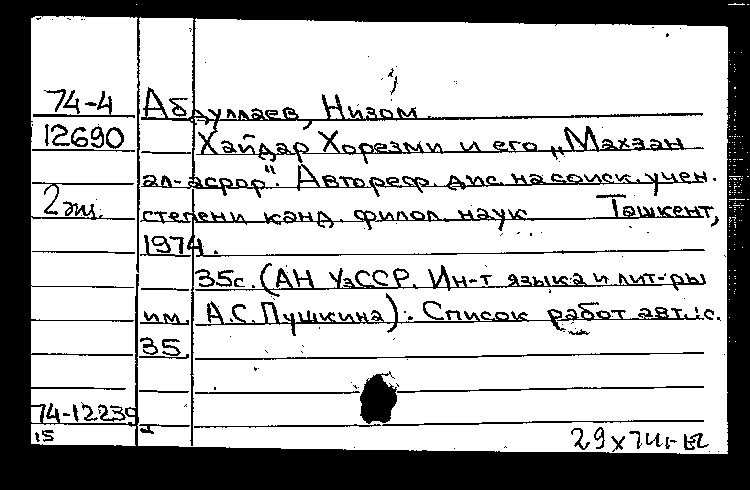 74-4 Абдуллаев, Низом.
12690 Хайдар Хорезми и его „Махзан
ал-асрор". Автореф. дис. на соиск. учен.
2 экз. степени канд. филол. наук. Ташкент,
1974.
35с. (АН УзССР. Ин-т языка и лит-ры
им. А.С. Пушкина). Список работ авт.: с.
35.
74-12239
15